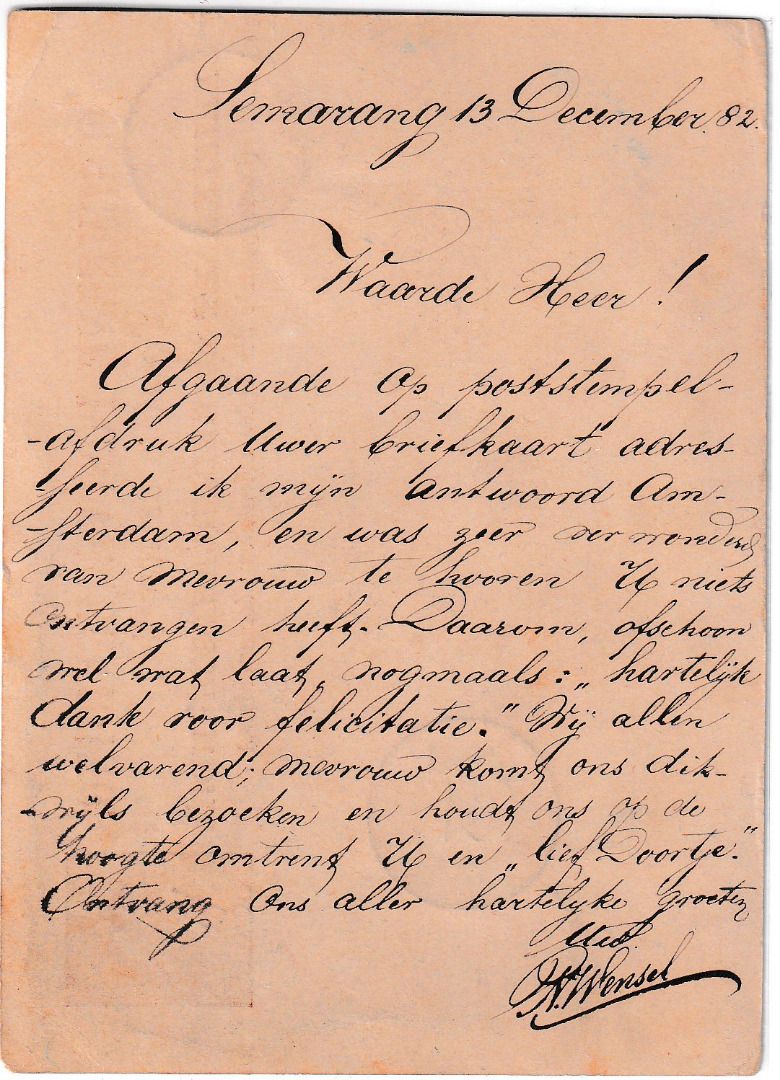 Semarang 13 December. 82.
Waarde Heer!
Afgaande op poststempel-
-afdruk Uwer briefkaart adres-
-seerde ik mijn antwoord Am-
-sterdam, en was zeer verwonderd
van Mevrouw te hooren U niets
Ontvangen heeft. Daarom, ofschoon
wel wat laat, nogmaals: „hartelijk
dank voor felicitatie." Wij allen
welvarend; Mevrouw komt ons dik-
-wijls bezoeken en houdt ons op de
hoogte omtrent U en „lief Doortje."
Ontvang Ons aller hartelyke groeten
Wensel